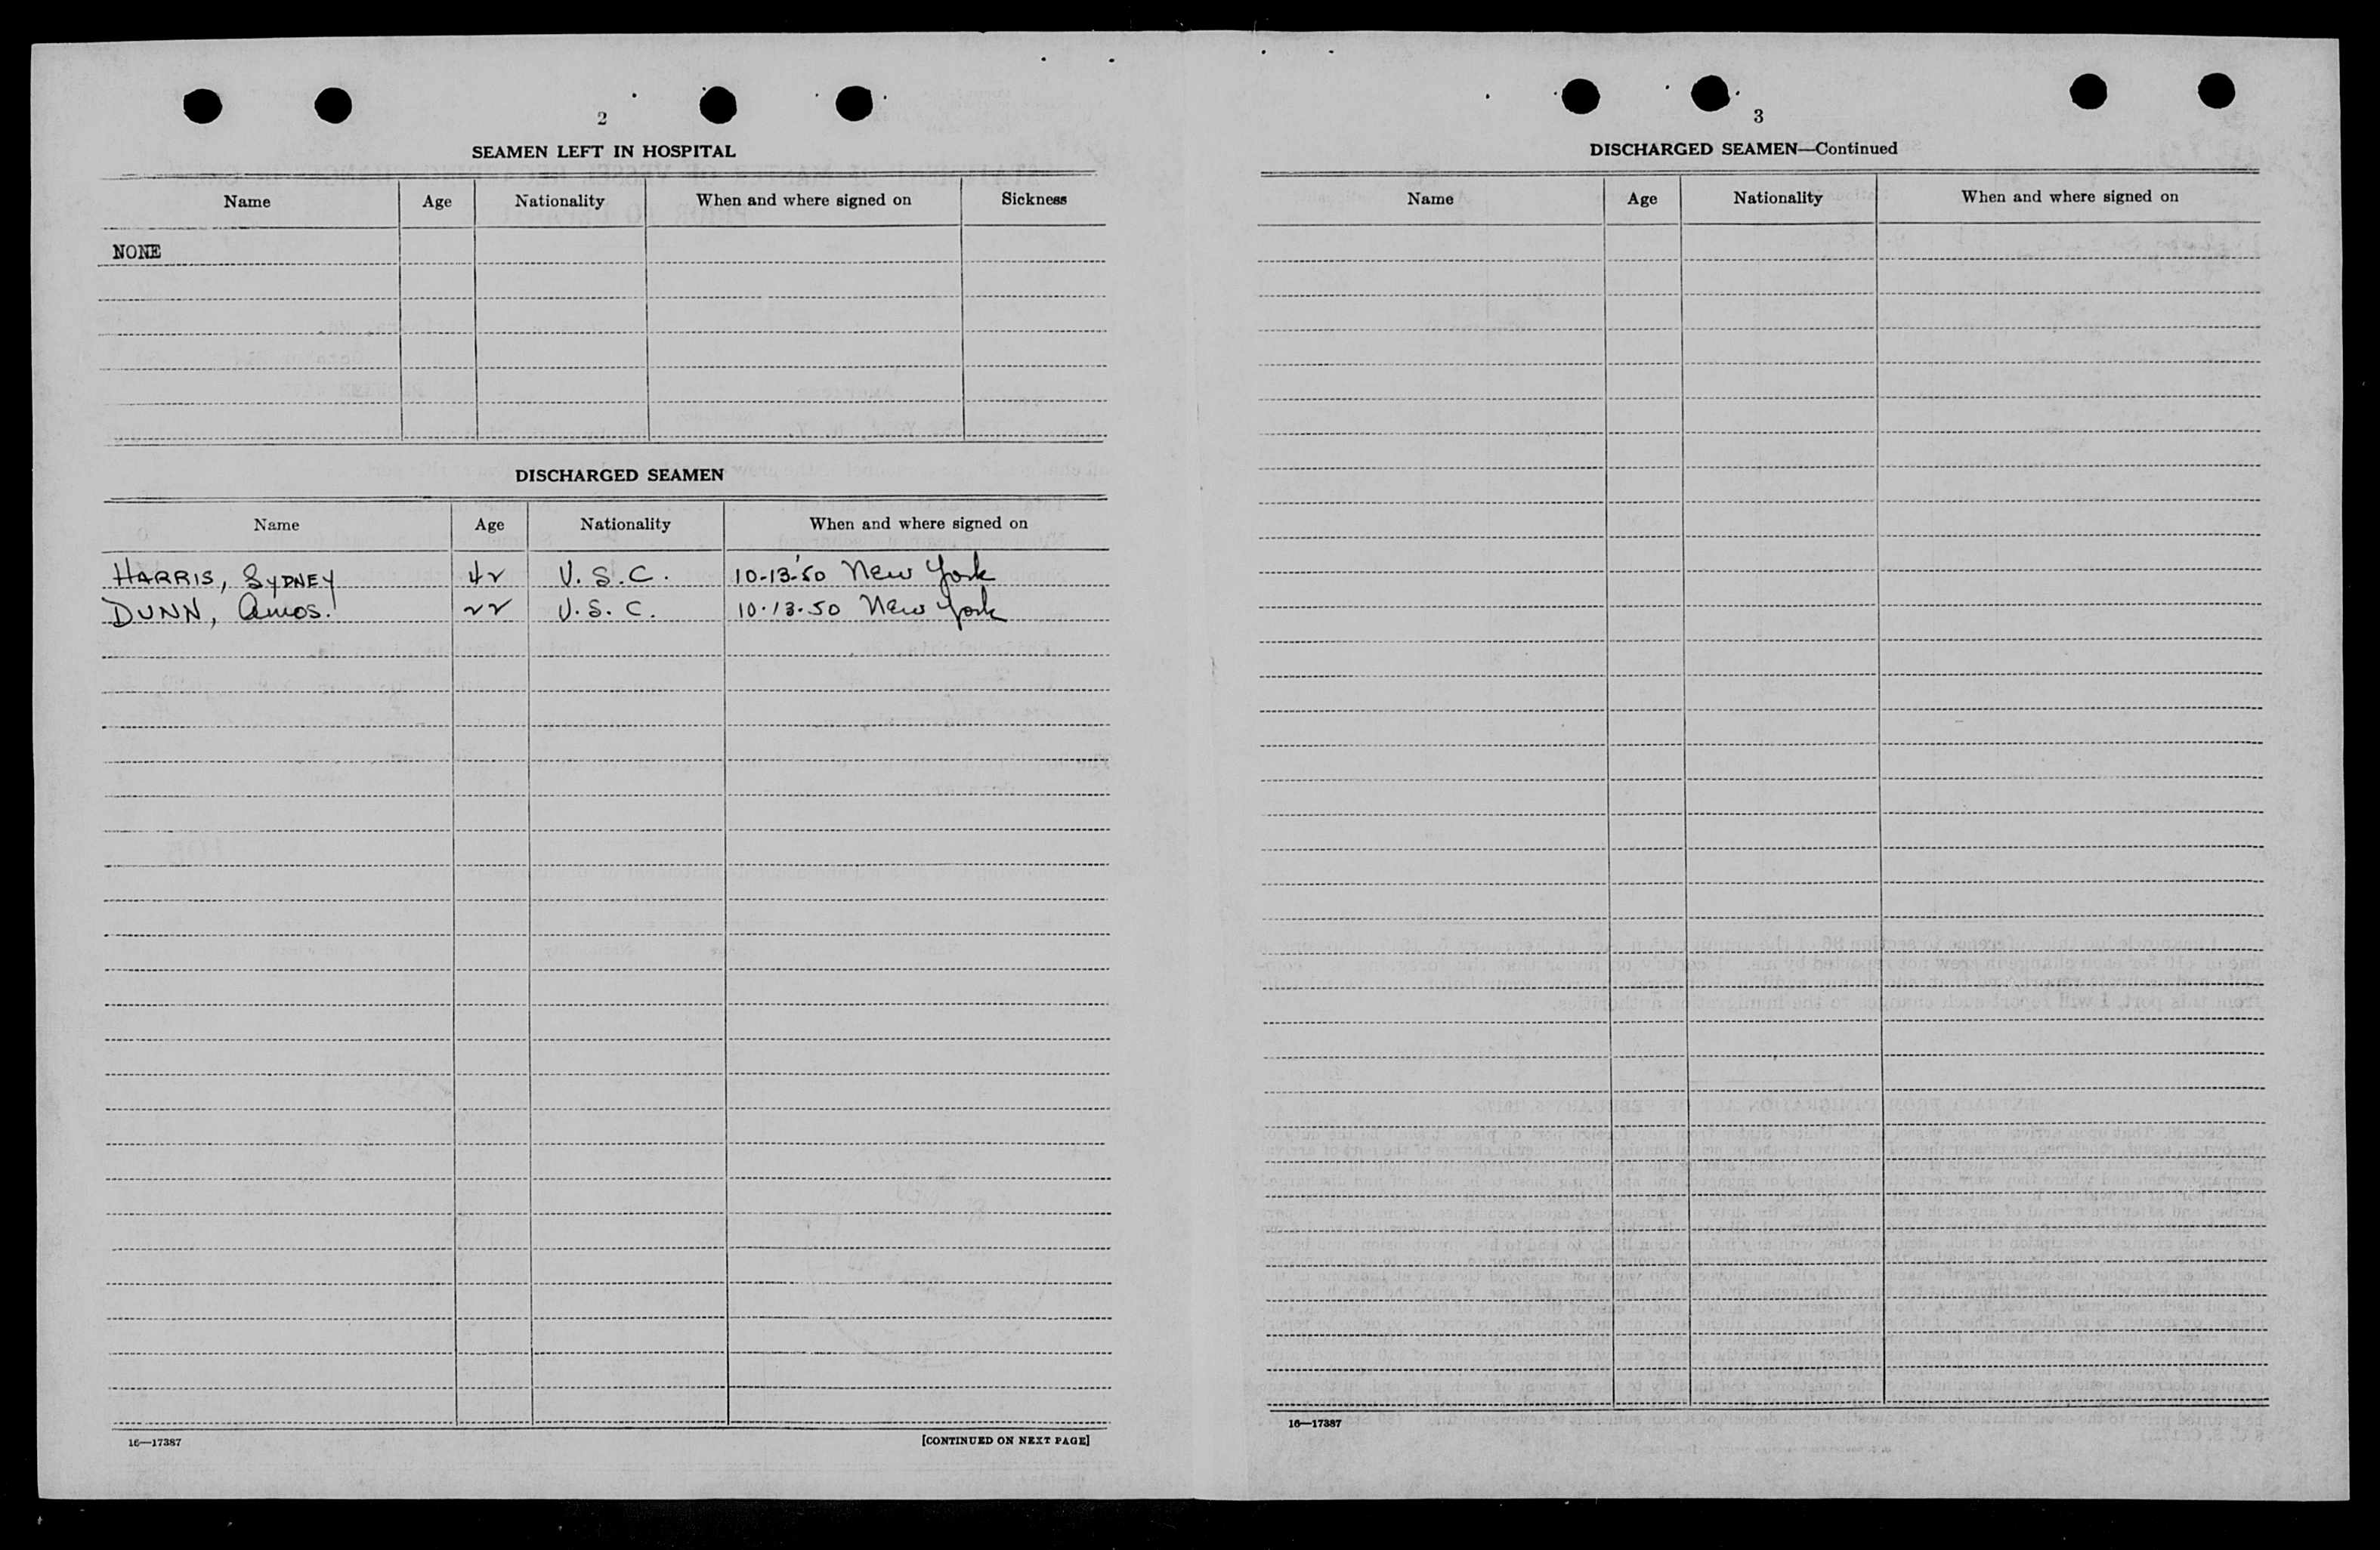 2
SEAMEN LEFT IN HOSPITAL
Name Age Nationality When and where signed on Sickness
NONE
DISCHARGED SEAMEN
Name Age Nationality When and where signed on
HARRIS, SYDNEY 42 U.S.C. 10-13-50 New York
DUNN, Amos. 22 U.S.C. 10-13-50 New York
16—17387 [CONTINUED ON NEXT PAGE]
3
DISCHARGED SEAMEN—Continued
Name Age Nationality When and where signed on
16—17387